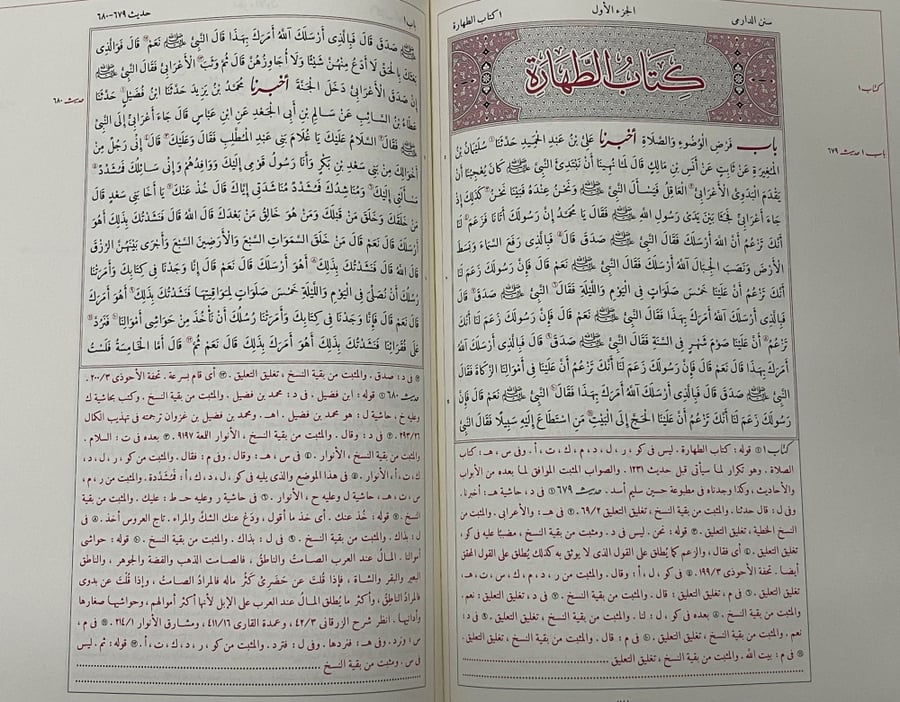 سنن الدارمى
الجزء الأول
١ كتاب الطهارة
كتاب ١
باب ١ حديث ٦٧٩
كتاب الطهارة
باب فرض الوضوء والصلاة أخبرنا على بن عبد الحميد حدثنا سليمان بن
المغيرة عن ثابت عن أنس بن مالك قال لما نهينا أن نبتدئ النبى ﷺ كان يعجبنا أن
يقدم البدوى الأعرابى العاقل فيسأل النبى ﷺ ونحن عنده فبينا نحن كذلك إذ
جاء أعرابى فجثا بين يدى رسول الله ﷺ فقال يا محمد إن رسولك أتانا فزعم لنا
أنك تزعم أن الله أرسلك فقال النبى ﷺ صدق قال فبالذى رفع السماء وبسط
الأرض ونصب الجبال آلله أرسلك فقال النبى ﷺ نعم قال فإن رسولك زعم لنا
أنك تزعم أن علينا خمس صلوات فى اليوم والليلة فقال النبى ﷺ صدق قال
فبالذى أرسلك آلله أمرك بهذا فقال النبى ﷺ نعم قال فإن رسولك زعم لنا أنك
تزعم أن علينا صوم شهر فى السنة فقال النبى ﷺ صدق قال فبالذى أرسلك آلله
أمرك بهذا قال نعم قال فإن رسولك زعم لنا أنك تزعم أن علينا فى أموالنا الزكاة فقال
النبى ﷺ صدق قال فبالذى أرسلك آلله أمرك بهذا فقال النبى ﷺ نعم قال فإن
رسولك زعم لنا أنك تزعم أن علينا الحج إلى البيت من استطاع إليه سبيلا فقال النبى
كتاب ١ ① قوله : كتاب الطهارة . ليس فى كو ، ر ، ل ، د ، م ، ك ، ت ، أ . وفى س ، هـ : كتاب
الصلاة . وهو تكرار لما سيأتى قبل حديث ١٢٣١ . والصواب المثبت الموافق لما بعده من الأبواب
والأحاديث ، وكذا وجدناه فى مطبوعة حسين سليم أسد . حديث ٦٧٩ ① فى د ، حاشية هـ : أخبرنا .
وفى ل : قال حدثنا . والمثبت من بقية النسخ ، تغليق التعليق ٦٩/٢ . فى هـ : والأعرابى . والمثبت من
النسخ الخطية ، تغليق التعليق . قوله : نحن . ليس فى د . ومثبت من بقية النسخ ، مضببا عليه فى كو ،
تغليق التعليق . أى فقال ، والزعم كما يطلق على القول الذى لا يوثق به كذلك يطلق على القول المحقق
أيضا . تحفة الأحوذى ١٩٩/٣ . فى كو ، ل ، أ : وقال . والمثبت من ر ، د ، م ، ك ، س ، ت ، هـ ،
تغليق التعليق . فى م ، تغليق التعليق : قال . والمثبت من بقية النسخ . فى د ، تغليق التعليق : نعم .
والمثبت من بقية النسخ . بعده فى كو ، ل : لنا . والمثبت من بقية النسخ ، تغليق التعليق . فى د :
نعم . والمثبت من بقية النسخ ، تغليق التعليق . فى م : قال . والمثبت من بقية النسخ ، تغليق التعليق .
فى م : بيت الله . والمثبت من بقية النسخ ، تغليق التعليق
باب ١
حديث ٦٧٩-٦٨٠
ﷺ صدق قال فبالذى أرسلك آلله أمرك بهذا قال النبى ﷺ نعم قال فوالذى
بعثك بالحق لا أدع منهن شيئا ولا أجاوزهن قال ثم وثب الأعرابى فقال النبى ﷺ
إن صدق الأعرابى دخل الجنة أخبرنا محمد بن يزيد حدثنا ابن فضيل حدثنا
حديث ٦٨٠
عطاء بن السائب عن سالم بن أبى الجعد عن ابن عباس قال جاء أعرابى إلى النبى
ﷺ فقال السلام عليك يا غلام بنى عبد المطلب فقال وعليك قال إنى رجل من
أخوالك من بنى سعد بن بكر وأنا رسول قومى إليك ووافدهم وإنى سائلك فمشدد
مسألتى إليك ومناشدك فمشدد مناشدتى إياك قال خذ عنك يا أخا بنى سعد قال
من خلقك وخلق من قبلك ومن هو خالق من بعدك قال الله قال فنشدتك بذلك أهو
أرسلك قال نعم قال من خلق السموات السبع والأرضين السبع وأجرى بينهن الرزق
قال الله قال فنشدتك بذلك أهو أرسلك قال نعم قال إنا وجدنا فى كتابك وأمرتنا
رسلك أن نصلى فى اليوم والليلة خمس صلوات لمواقيتها فنشدتك بذلك أهو أمرك
قال نعم قال فإنا وجدنا فى كتابك وأمرتنا رسلك أن نأخذ من حواشى أموالنا فنرد
على فقرائنا فنشدتك بذلك أهو أمرك بذلك قال نعم ثم قال أما الخامسة فلست
فى د : صدق . والمثبت من بقية النسخ ، تغليق التعليق . أى قام بسرعة . تحفة الأحوذى ٢٠٠/٣ .
حديث ٦٨٠ ① قوله : ابن فضيل . فى د : محمد بن فضيل . والمثبت من بقية النسخ . وكتب بحاشية ك
وعليه خ ، حاشية ل : هو محمد بن فضيل . اهـ . ومحمد بن فضيل بن غزوان ترجمته فى تهذيب الكمال
٢٩٣/٢٦ . فى د : وقال . والمثبت من بقية النسخ ، الأنوار اللمعة ٩١٩٧ . بعده فى ت : السلام .
والمثبت من بقية النسخ ، الأنوار . فى س ، هـ : وقال . وفى م : فقال . والمثبت من كو ، ر ، ل ، د ،
ك ، ت ، أ ، الأنوار . فى هذا الموضع والذى يليه فى كو ، ل ، د ، ك ، أ : فمشددة . والمثبت من ر ، م ،
س ، ت ، هـ ، حاشية ل وعليه ح ، الأنوار . فى حاشية ر وعليه حـ ط : عليك . والمثبت من بقية
النسخ . قوله : خذ عنك . أى خذ ما أقول ، ودع عنك الشك والمراء . تاج العروس أخذ . فى
ل : بذاك . والمثبت من بقية النسخ . فى ل : بذاك . والمثبت من بقية النسخ . قوله : حواشى
أموالنا . المال عند العرب الصامت والناطق ، فالصامت الذهب والفضة والجوهر ، والناطق
البعير والبقر والشاة ، فإذا قلت عن حضرى كثر ماله فالمراد الصامت ، وإذا قلت عن بدوى
فالمراد الناطق ، وأكثر ما يطلق المال عند العرب على الإبل لأنها أكثر أموالهم ، وحواشيها صغارها
وأدانيها . انظر شرح الزرقانى ٤٢/٣ ، وعمدة القارى ٤١١/١٦ ، ومشارق الأنوار ٢١٤/١ . فى م ،
س : ونرد . وفى هـ : فنردها . وفى ل : فترد . والمثبت من كو ، ر ، د ، ك ، ت ، أ . قوله : ثم . ليس
فى س . ومثبت من بقية النسخ